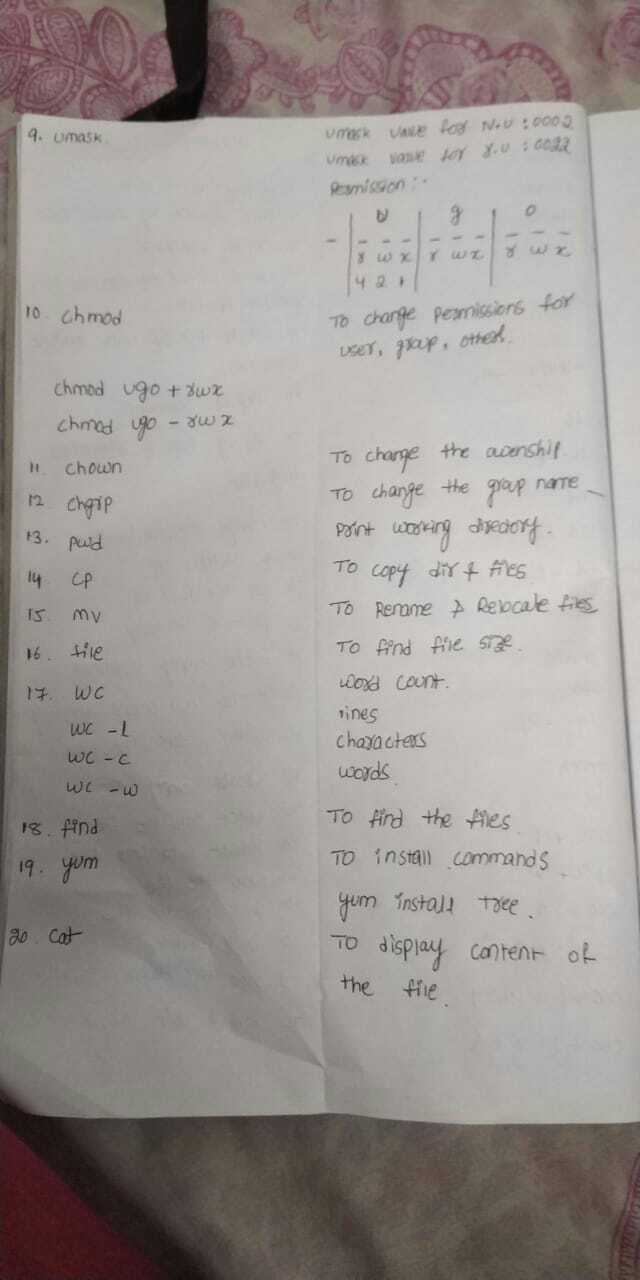 9. umask. umask value for N.U : 0002
umask value for r.u : 0022
Permission :-
u g o
- - - - - - - - - -
r w x r w x r w x
4 2 1
10. chmod To change permissions for
user, group, other.
chmod ugo + rwx
chmod ugo - rwx
11. chown To change the owenship.
12. chgrp To change the group name
13. pwd print working directory.
14. cp To copy dir & files
15. mv To Rename & Relocate files
16. file To find file size.
17. wc word count.
wc -l lines
wc -c characters
wc -w words.
18. find To find the files
19. yum To install commands
yum install tree.
20. cat To display content of
the file.